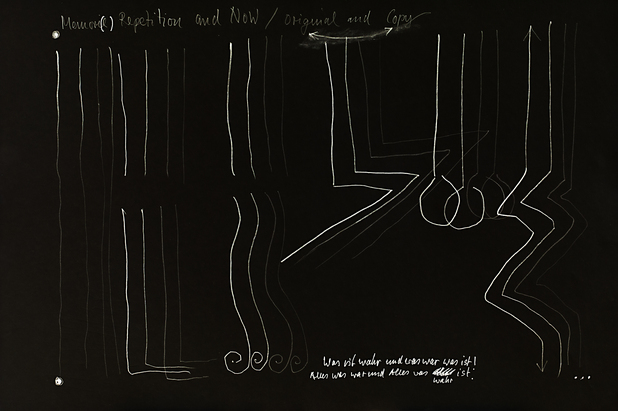 Memor(e) Repetition and Now / original and Copy
Was ist wahr und was war was ist!
Alles was war und Alles was ist!
wahr
...